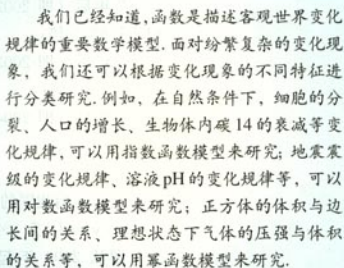 我们已经知道,函数是描述客观世界变化
规律的重要数学模型.面对纷繁复杂的变化现
象，我们还可以根据变化现象的不同特征进
行分类研究.例如，在自然条件下，细胞的分
裂、人口的增长、生物体内碳14的衰减等变
化规律,可以用指数函数模型来研究;地震震
级的变化规律、溶液pH的变化规律等，可以
用对数函数模型来研究；正方体的体积与边
长间的关系、理想状态下气体的压强与体积
的关系等，可以用幂函数模型来研究.